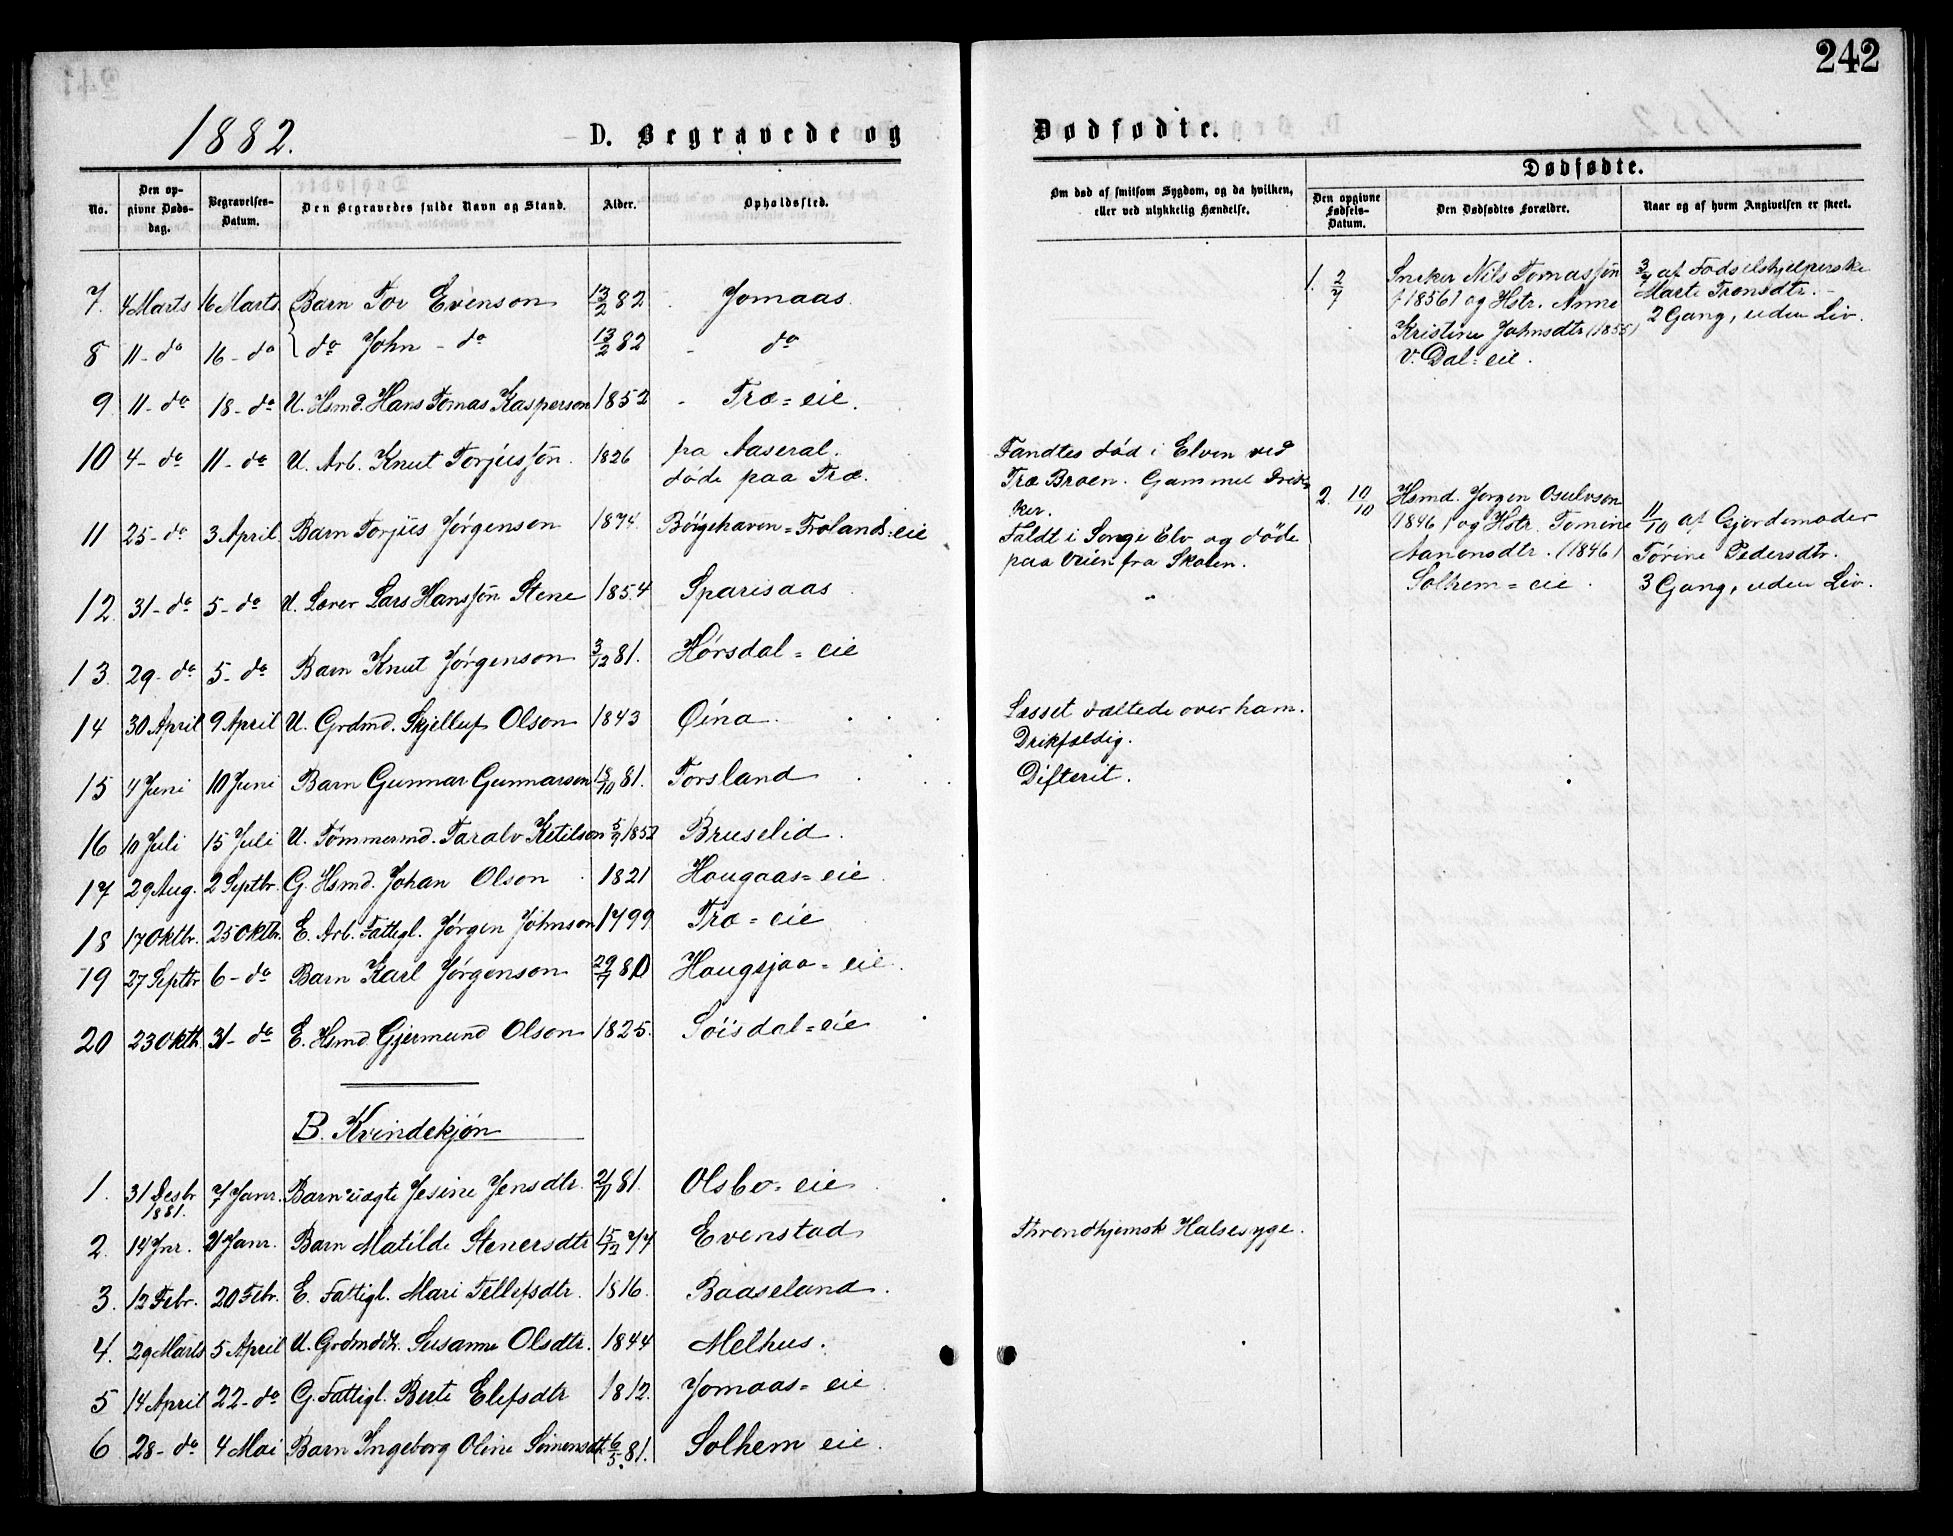 242
1882.
D. Begravede og Dødfødte.
No. | Den opgivne Dødsdag. | Begravelses-Datum. | Den Begravedes fulde Navn og Stand. | Alder. | Opholdssted.
7. 4 Marts 16 Marts Barn Tov Evenson 13/2 82 - Jomaas.
8 11 - do 16 - do do John - do 13/2 82 - do
9 11 - do 18 - do U. Hsmd. Hans Tomas Kasperson 1852 - Træ = eie.
10 4 - do 11 - do U. Arb. Knut Torjusson. 1826 fra Aaseral.
døde paa Træ.
11 25 - do 3 April Barn Torjus Jørgenson 1874 Børgehaven = Froland = eie
12. 31 - do 5 - do U. Lærer Lars Hansson Stene 1854 Sparisaas
13. 29 - do 5 - do Barn Knut Jørgenson 3/12 81. Hørsdal = eie
14 30 April 9 April U. Grdmd. Skjelluf Olson 1843 Øina.
15 4 Juni 10 Juni Barn Gunnar Gunnarson 18/10 81. Torsland
16 10 Juli 15 Juli U. Tømmermd. Taralv Ketilson 5/7 1852 Bruselid.
17 29 Aug. 2 Septbr. G. Hsmd. Johan Olson 1821 Hougaas = eie
18 17 Oktbr. 25 Oktbr. E. Arb. Fattigl. Jørgen Johnson 1799 Træ = eie
19 27 Septbr 6 - do Barn Karl Jørgenson 29/7 80 Hougsjaa = eie.
20 23 Oktb. 31 - do E. Hsmd. Gjermund Olson 1825. Søisdal = eie
B. Kvindekjøn
1. 31 Desbr 1881. 7 Janr. Barn uægte Jesine Jensdtr. 21/11 81. Olsbo = eie
2. 14 Jnr. 21 Janr. Barn Matilde Stenersdtr 15/12 74 Evenstad
3. 12 Febr. 20 Febr. E. Fattigl. Mari Tellefsdtr. 1816. Baaseland.
4. 29 Marts 5 April U. Grdmdtr. Susanne Olsdtr. 1844 Melhus.
5 14 April 22 - do G. Fattigl. Berte Elefsdtr 1812. Jomaas = eie
6 28 - do 4 Mai Barn Ingeborg Oline Simensdtr. 6/5 81. Solhem eie.
Om død af smitsom Sygdom, og da hvilken,
eller ved ulykkelig Hændelse.
Fandtes død i Elven ved
Træ Broen. Gammel Drik-
ker.
Faldt i Songe Elv og døde
paa veien fra Skolen.
"
Læsset væltede over ham.
Drikfældig.
Difterit.
Throndhjemsk Halsesyge.
Dødfødte.
Den opgivne Fødsels-Datum. | Den Dødfødtes Forældre. | Naar og af hvem Angivelsen er skeet.
1. 2/7
Sneker Nils Tomasson
(1856) og Hstr. Anne
Kristine Johnsdtr (1855)
v. Dal = eie.
3/7 af Fødselshjelperske
Marte Tronsdtr. -
2 Gang, uden Liv.
2. 10/10
Hsmd. Jørgen Osulvson
(1846) og Hstr. Tomine
Aanonsdtr. (1846)
Solhem = eie.
11/10 af Gjordemoder
Torine Pedersdtr.
3 Gang, uden Liv.